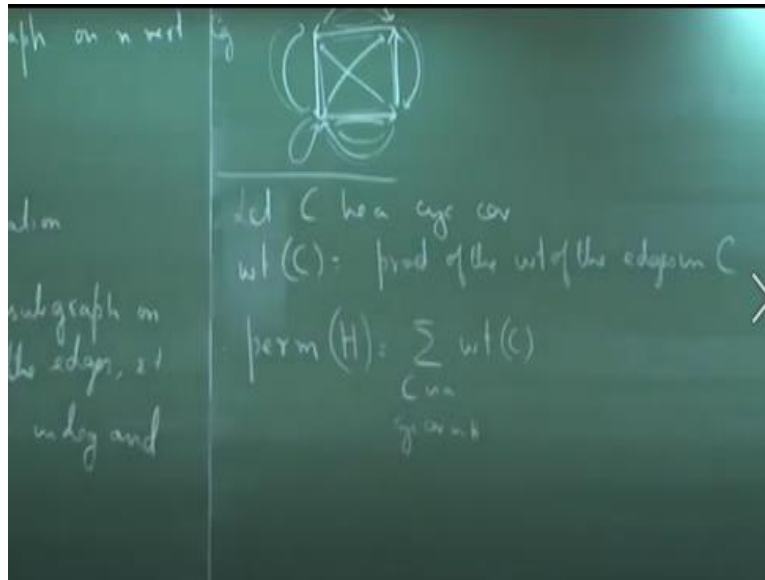 aph on n vert
ation
subgraph on
the edges, st
indeg and
Eg
Let C be a cyc cov
wt(C) = prod of the wt of the edges in C
perm(H) = ∑ wt(C)
C is a
cyc cov in H